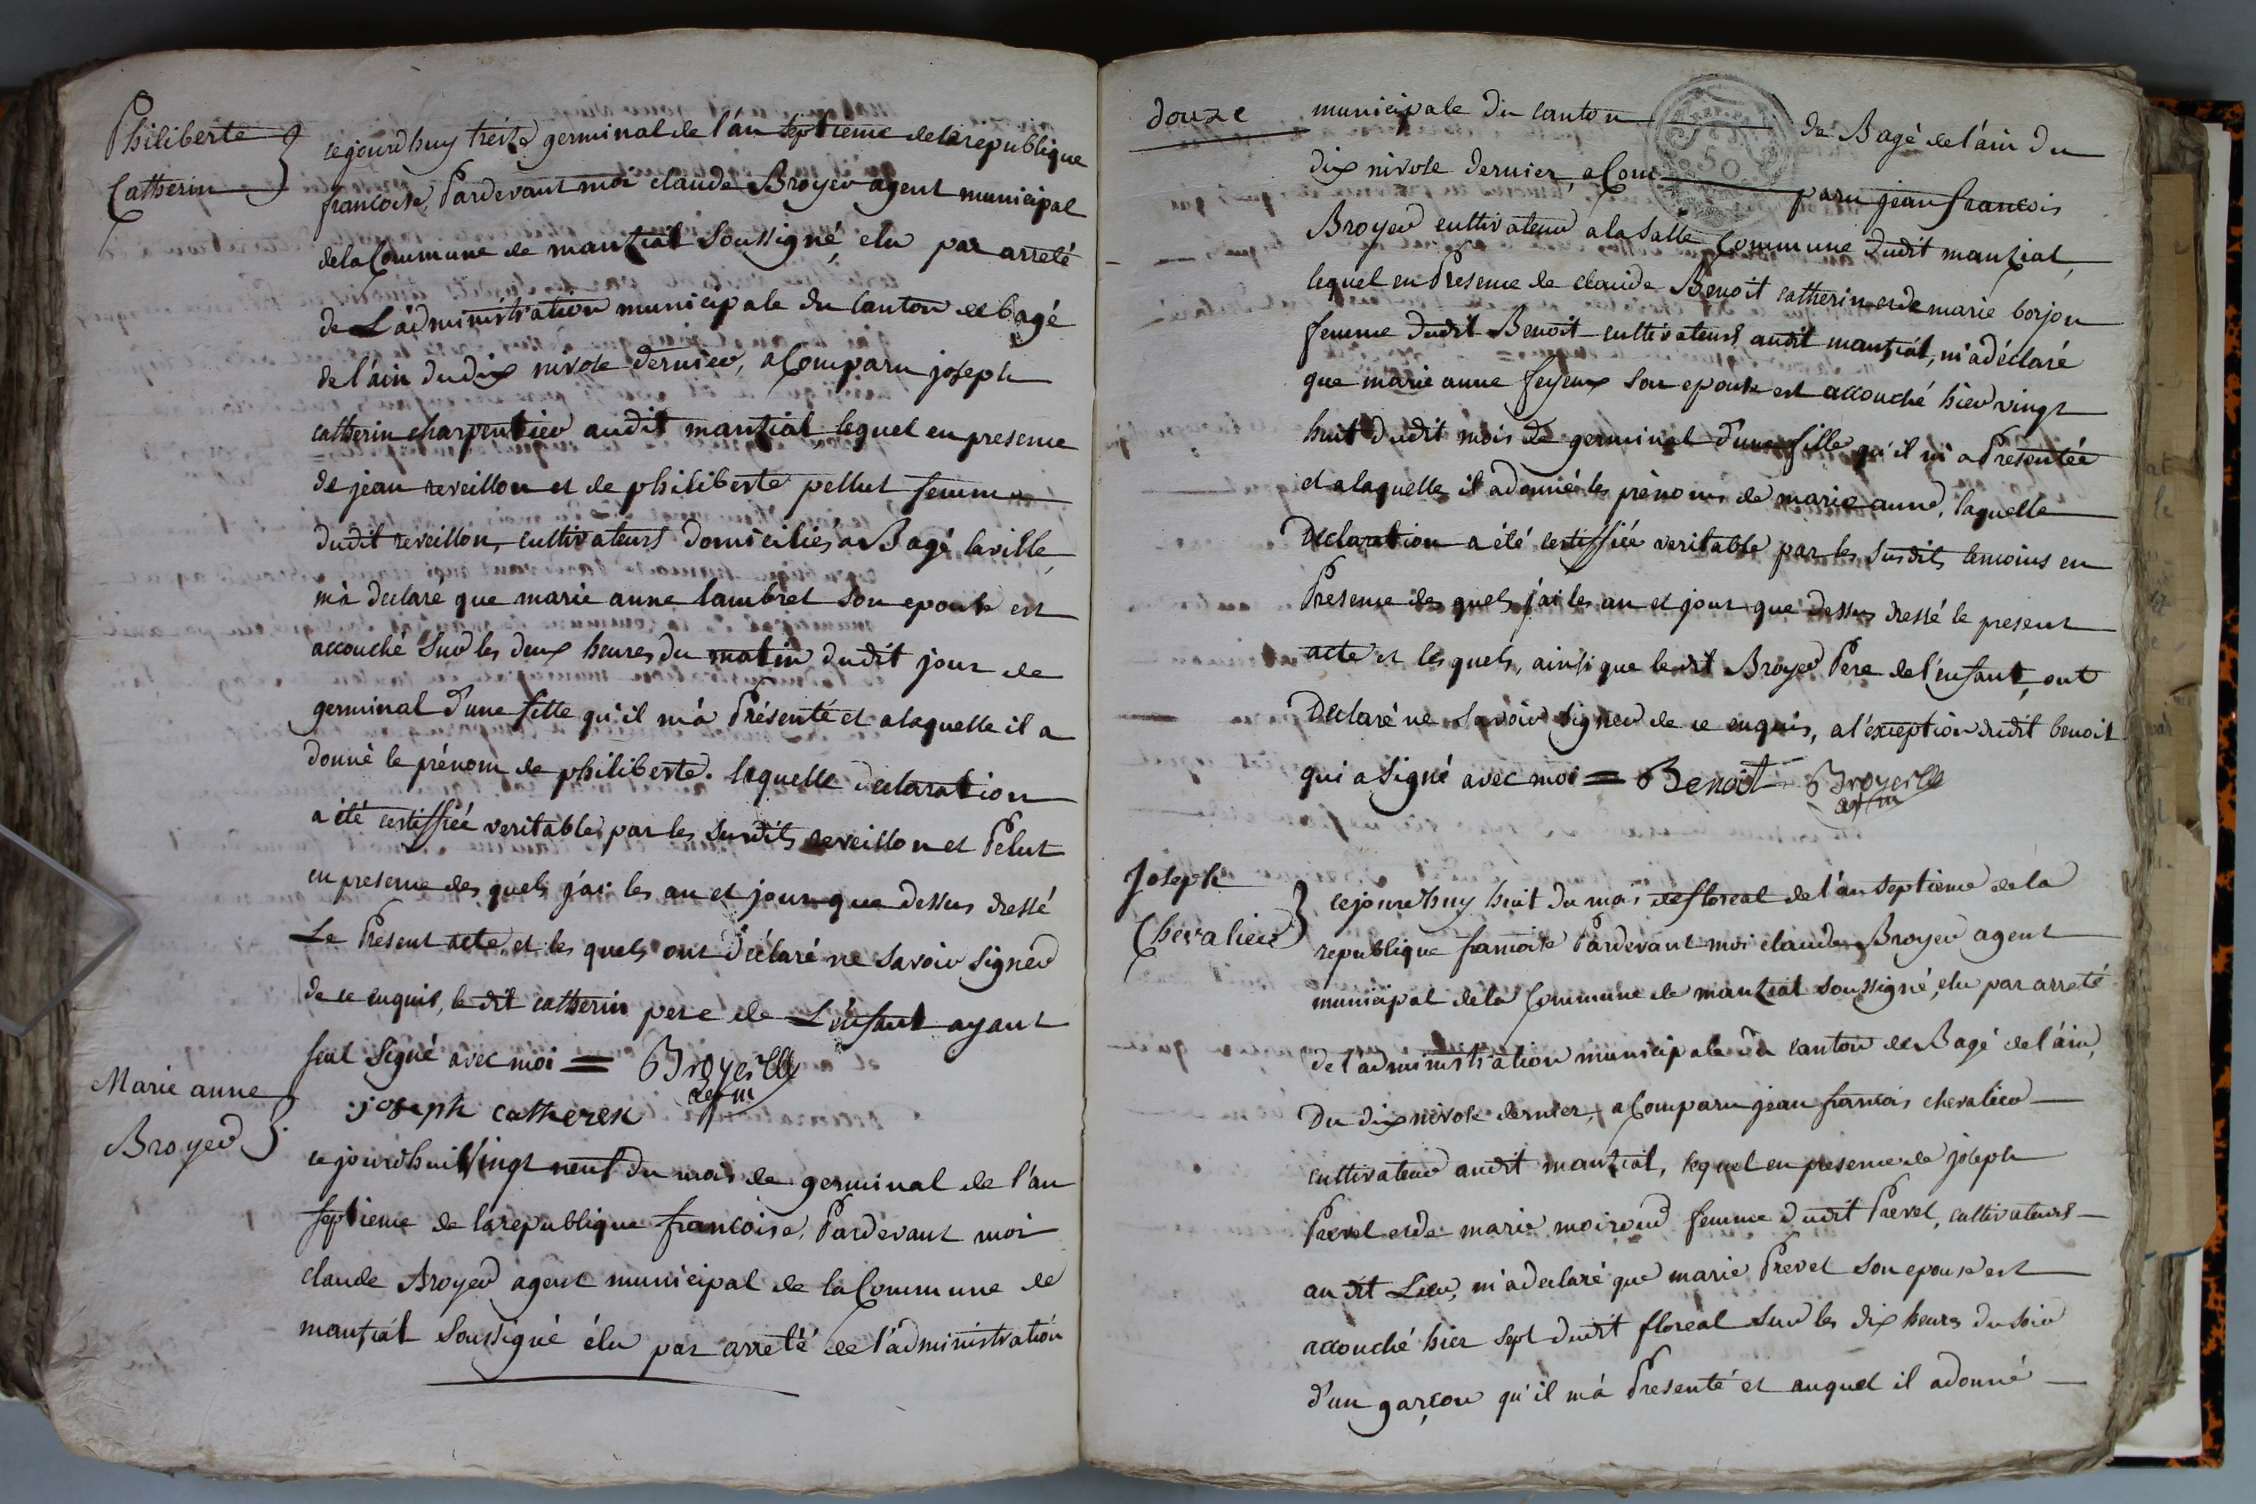 Philiberte
Catherin
cejourdhuy treize germinal de l'an septieme de la republique
francoise, Pardevant moi claude Broyer agent municipal
de la Commune de manziat Soussigné, elu par arreté
de L'administration municipale du Canton de bagé
de l'ain du dix nivose dernier, a Comparu joseph
catherin charpentier audit manziat lequel en presence
de jean reveillon et de philiberte pellut femme
dudit reveillon, cultivateurs domiciliés a Bagé la ville,
m'a declaré que marie anne lambret son epouse est
accouché Sur les deux heures du matin dudit jour de
germinal d'une fille qu'il m'a Présenté et a laquelle il a
donné le prénom de philiberte. laquelle declaration
a été certiffiée veritable par les Susdits reveillon et Pelut
en presence des quels j'ai les an et jour que dessus dressé
Le Present acte, et les quels ont déclaré ne savoir signer
de ce enquis, le dit catherin pere de L'enfant ayant
seul Signé avec moi = Broyer
ag m
joseph catheren
Marie anne
Broyer
ce jourdhui Vingt neuf du mois de germinal de l'an
septieme de la republique francoise, Pardevant moi
claude Broyer agent municipal de la Commune de
manziat Soussigné élu par arreté de l'administration
douze
municipale du Canton de Bagé de l'ain du
dix nivose dernier, a Comparu jean francois
Broyer cultivateur a la Salle Commune dudit manziat,
lequel en Presence de claude Benoit catherin et de marie borjon
femme dudit Benoit cultivateurs audit manziat, m'a déclaré
que marie anne feyeux son epouse est accouché hier vingt
huit dudit mois de germinal d'une fille qu'il m'a Presentée
et a laquelle il a donné les prénoms de marie anne, laquelle
Declaration a été certiffiée veritable par les Susdits temoins en
Presence des quels j'ai les an et jour que dessus dressé le present
acte et les quels, ainsi que le dit Broyer Pere de l'enfant, ont
Declaré ne Savoir Signer de ce enquis, a l'exception dudit benoit
qui a Signé avec moi = Benoit Broyer
ag m
Joseph
Chevalier
cejourdhuy huit du mois de floreal de l'an septieme de la
republique francoise Pardevant moi claude Broyer agent
municipal de la Commune de manziat soussigné, elu par arreté
de l'administration municipale du canton de Bagé de l'ain,
Du dix nivose dernier, a Comparu jean francois chevalier
cultivateur audit manziat, lequel en presence de joseph
Prevel et de marie moiroud femme dudit Prevel, cultivateurs
au dit Lieu, m'a declaré que marie Prevel son epouse est
accouché hier sept dudit floreal sur les dix heures du soir
d'un garçon qu'il m'a Presenté et auquel il a donné